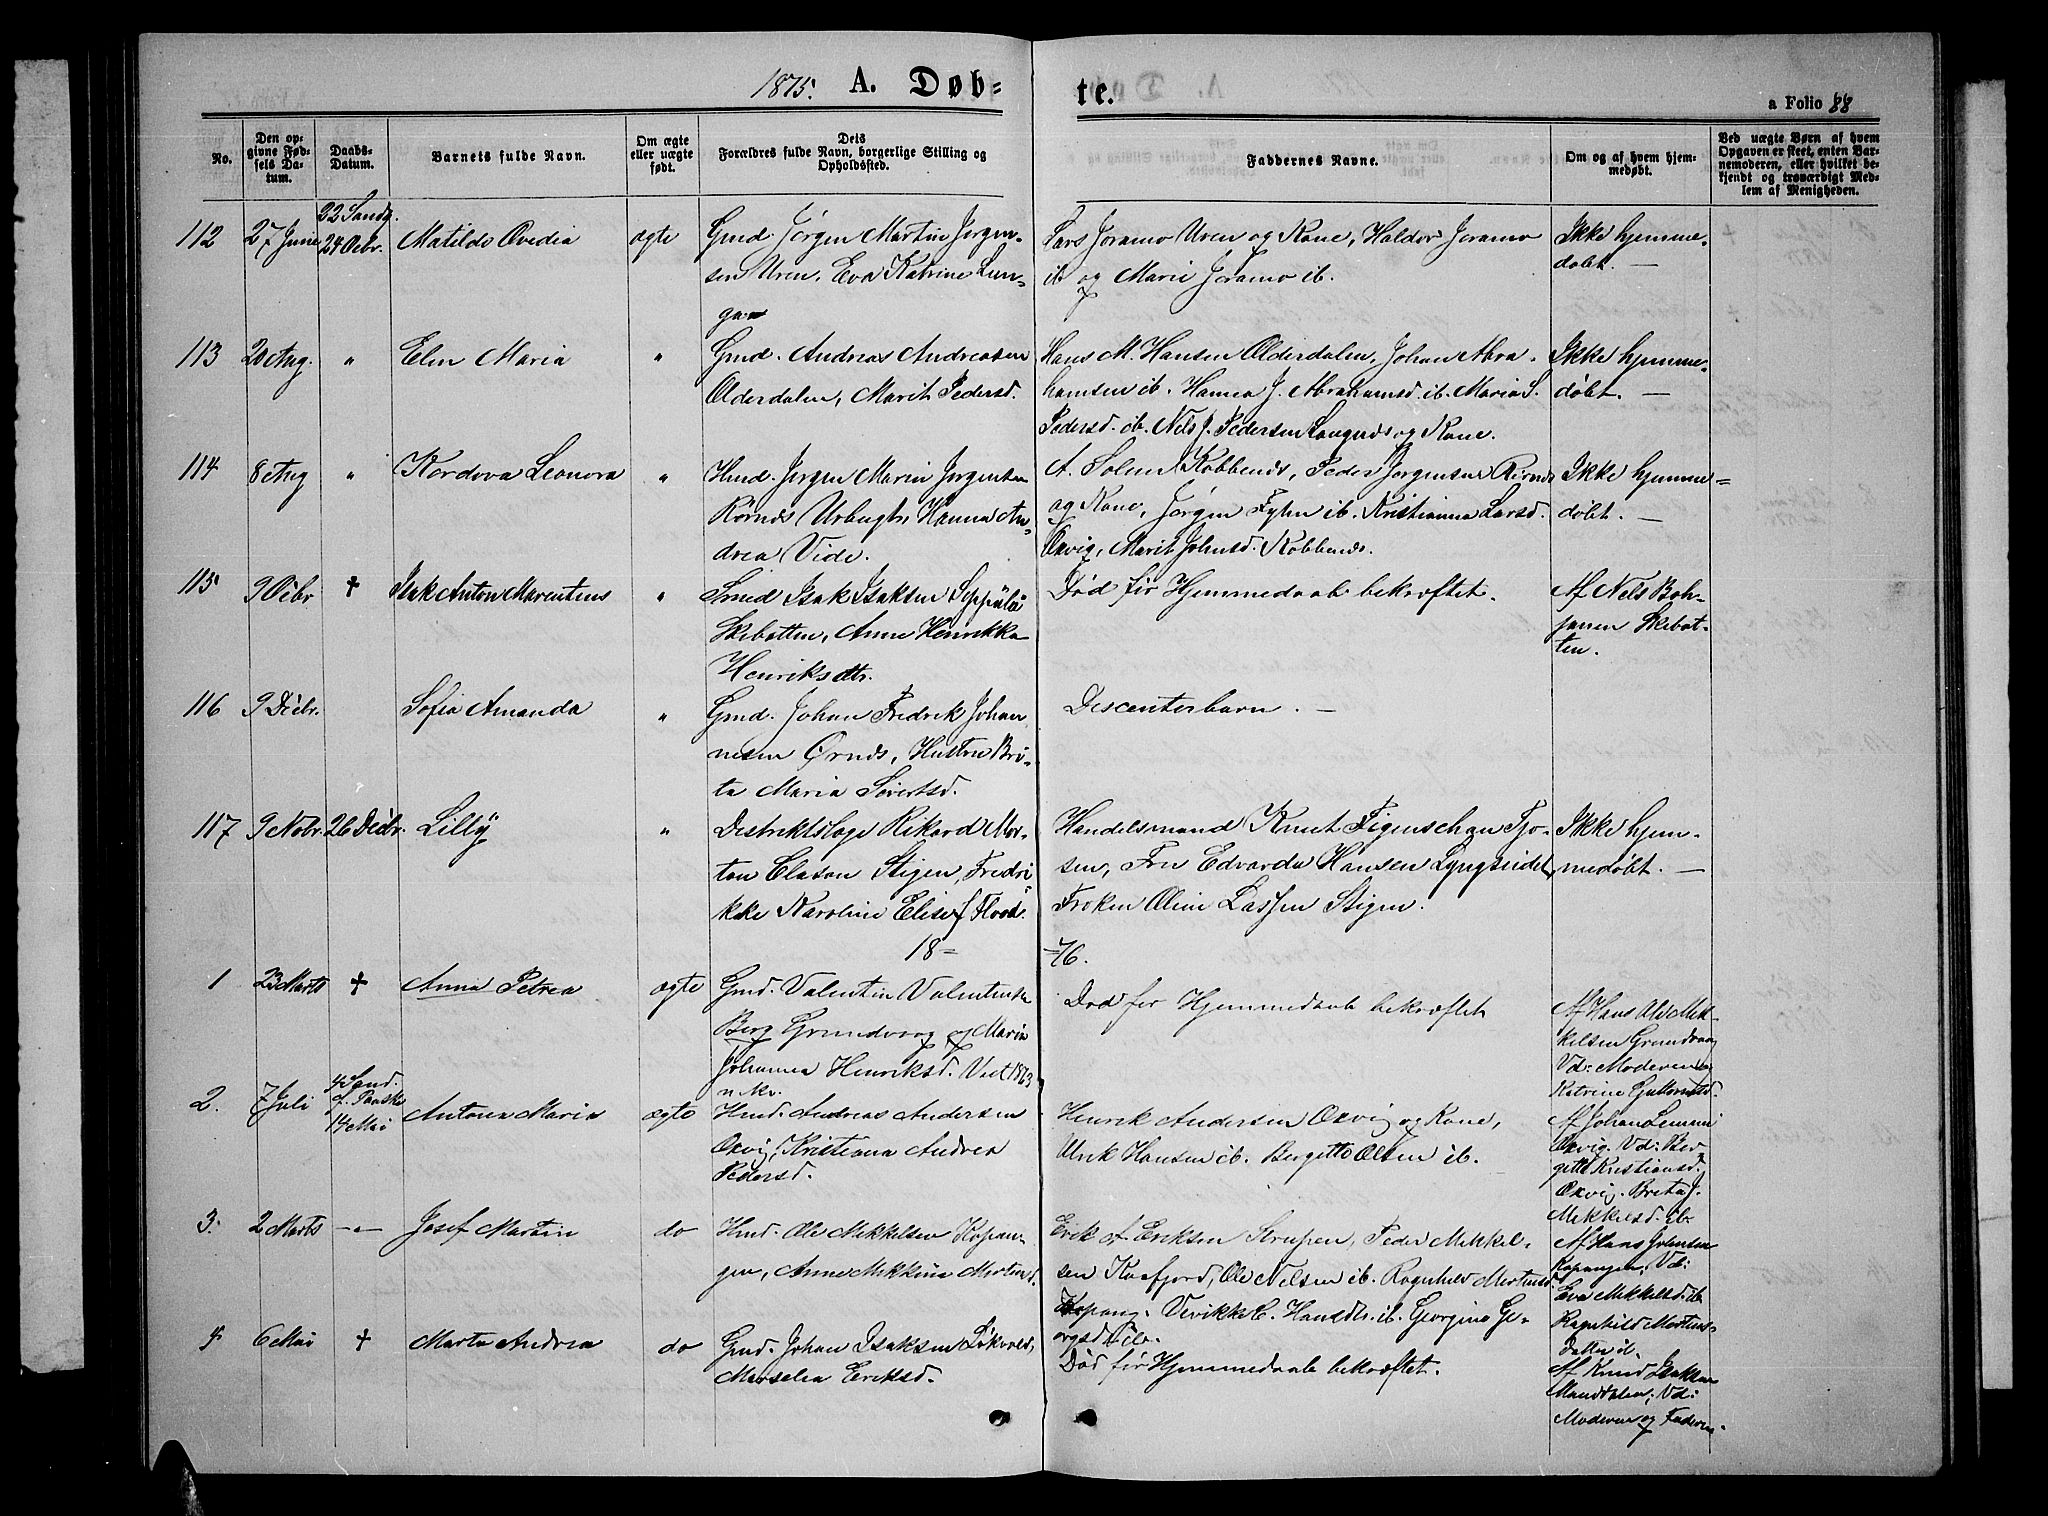 1875. A. Døb=
te.
a Folio 88
No.
Den op-
givne Fød-
sels Da-
tum.
Daabs-
Datum.
Barnets fulde Navn.
Om ægte
eller uægte
født.
Dets
Forældres fulde Navn, borgerlige Stilling og
Opholdssted.
Faddernes Navne.
Om og af hvem hjem-
medøbt.
Ved uægte Børn af hvem
Opgaven er skeet, enten Bar-
nemoderen, eller hvilket be-
kjendt og troværdigt Med-
lem af Menigheden.
112
27 Juni
22 Søndg.
24 Ocbr.
Matilde Ovedia
ægte
Gmd. Jørgen Martin Jørgen-
sen Uren, Eva Katrine Lun-
gan
Lars Joramo Uren og Kone, Haldor Joramo
ib og Marie Joramo ib.
Ikke hjemme-
døbt. —
113
20 Aug.
"
Elen Maria
"
Gmd. Andreas Andreasen
Olderdalen, Marit Pedersd.
Hans M. Hansen Olderdalen, Johan Abra-
hamsen ib. Hanna J. Abrahamsd. ib. Maria S.
Pedersd. ib. Nels J. Pedersen Langnds og Kone.
Ikke hjemme-
døbt. —
114
8 Aug
"
Kordova Leonora
"
Hmd. Jørgen Marin Jørgensen
Rørnds Urbugt, Hanna An-
drea Vide.
A. Solem Kobbends, Peder Jørgensen Rørnds
og Kone, Jørgen Fyhn ib. Kristianna Larsd.
Oxvig, Marit Johnsd. Kobbends.
Ikke hjemme=
døbt. —
115
9 Ocbr
†
Isak Anton Marentius
"
Smed Isak Isaksen Seppälä
Skibotten, Anna Henrikka
Henriksdtr.
Død før Hjemmedaab bekræftet.
Af Nels Boh-
janen Skibot-
ten.
116
9 Decbr.
Sofia Amanda
"
Gmd. Johan Fredrik Johan
nesen Ørnds, Hustru Bri-
ta Maria Sivertsd.
Descenterbarn. —
117
9 Nobr.
26 Decbr.
Lilly
"
Destriktslæge Rikard Mor-
ton Clason Stigen, Fredri
kke Karoline Elise f. Flood.
Handelsmand Knut Figenschau Tjo-
sen, Fru Edvarda Hansen Lyngseidet,
Frøken Oline Lassen Stigen.
Ikke hjem-
medøbt. —
18=
=76.
1
23 Marts
†
Anna Petrea
ægte
Gmd. Valentin Valentinsen
Berg Grundvaag og Maria
Johanna Henriksd. Viet 1863
n. kv.
Død før Hjemmedaab bekræftet
Af Hans Ole Mik-
kelsen Grundvaag
Vd: Moderen og
Katrine Guttormsd.
2.
7 Juli
4 Sønd.
f. Paaske
14 Mai
Antona Maria
ægte
Hmd. Andreas Andersen
Oxvig, Kristiana Andrea
Pedersd.
Henrik Andersen Oxvig og Kone,
Ulrik Hansen ib. Bergitte Olsen ib.
Af Johan Lemmi
Oxvig. Vd: Ber-
gitte Kristiansd.
Oxvig. Breta J.
Mikkelsd. ib.
3.
2 Marts
-"-
Josef Martin
do
Hmd. Ole Mikkelsen Kopan-
gen, Anne Mikkelina Mortensd.
Erik A. Eriksen Strupen, Peder Mikkel-
sen Kaafjord, Ole Nelsen ib. Ragnhild Mortensd.
Kopang. Vivikke C. Hansdtr. ib. Georgine Ge-
orgsd. ib.
Af Hans Johnsen
Kopangen, Vd:
Eva Mikkelsd. ib.
Ragnhild Mortens-
datter ib.
4
6 Mai
†
Marta Andrea
do
Gmd. Johan Isaksen Løkvold,
Marselia Eriksd.
Død før Hjemmedaab bekræftet.
Af Knud Isaksen
Manddalen, Vd:
Moderen og Faderen.